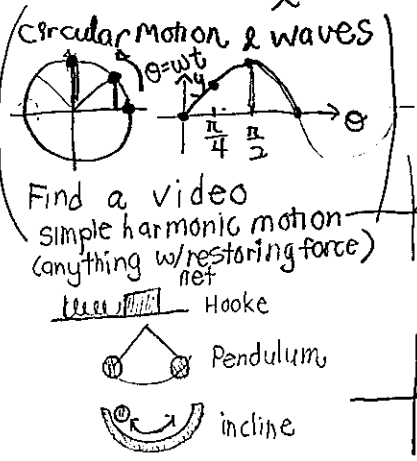 circular Motion & waves
θ=wt
y
θ
π/4 π/2
Find a video
simple harmonic motion
(anything w/restoring force)
net
Hooke
Pendulum
incline